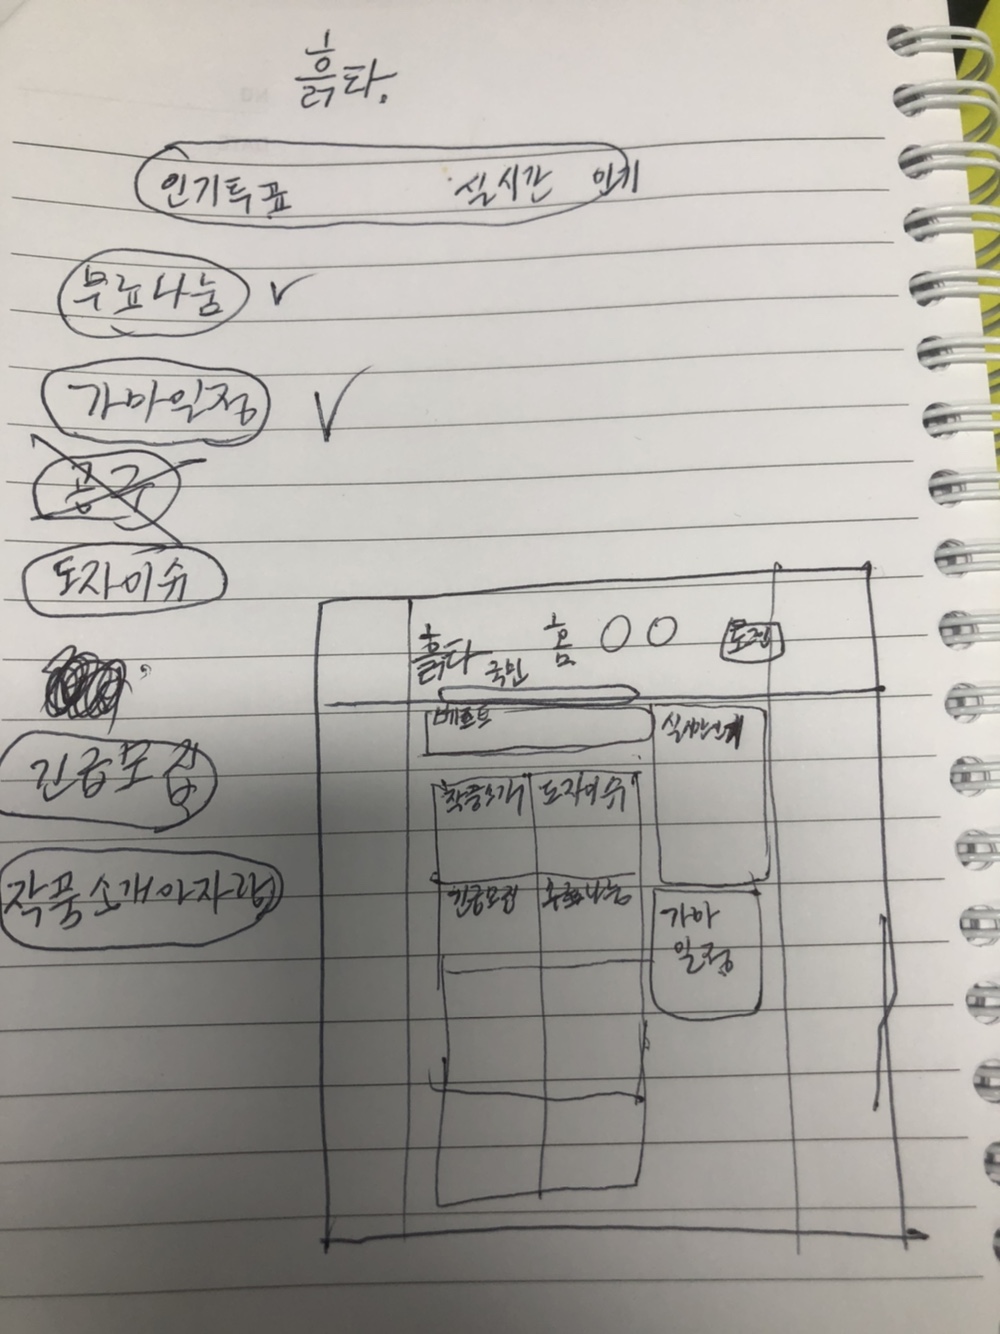 흙타.
인기투표 실시간 인기
무료나눔
가마일정
공구
도자이슈
긴급모집
작품소개아자랑
흙타 홈
국민
베스트
작품소개 도자이슈
긴급모집 무료나눔
가마
일정